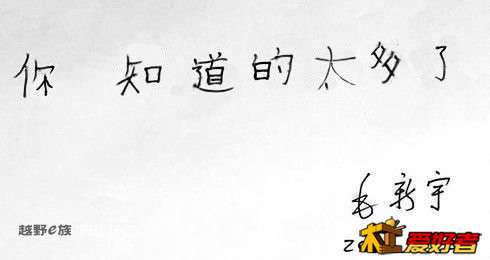 你知道的太多了
毛新宇
越野e族
爱好者